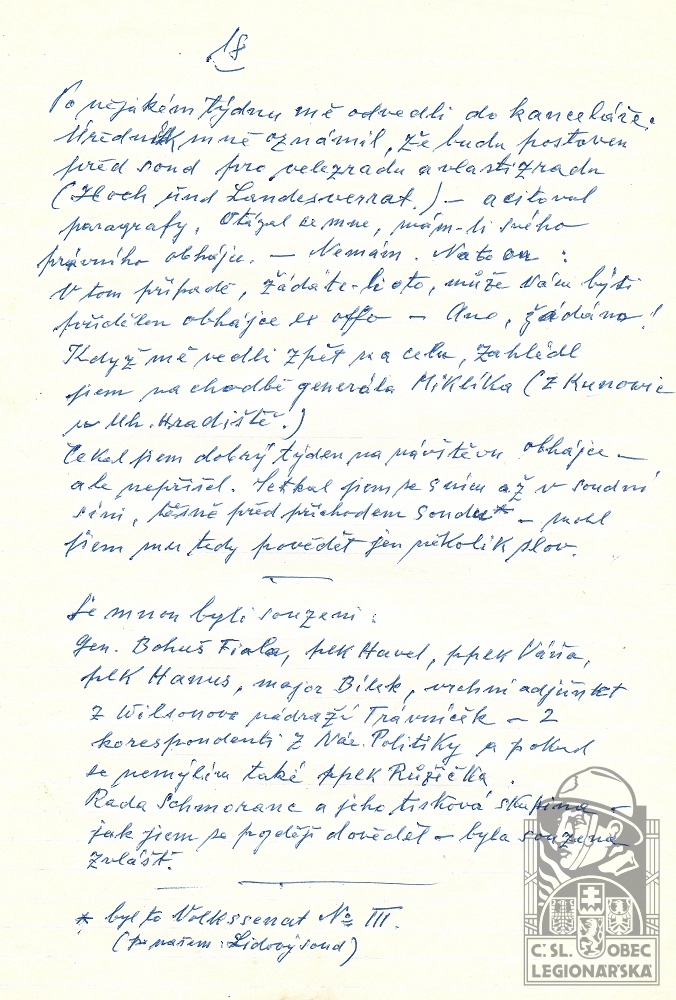 18
Po nějakém týdnu mě odvedli do kanceláře.
Úředník mně oznámil, že budu postaven
před soud pro velezradu a vlastizradu
(Hoch und Landesverrat.) – a citoval
paragrafy. Otázal se mne, mám-li svého
právního obhájce. – Nemám. Nato on :
V tom případě, žádáte-li oto, může Vám býti
přidělen obhájce ex offo – Ano, žádám!
Když mě vedli zpět na celu, zahlédl
jsem na chodbě generála Miklíka (z Kunovic
u Uh. Hradiště.)
Čekal jsem dobrý týden na návštěvu obhájce –
ale nepřišel. Setkal jsem se s ním až v soudní
síni, těsně před příchodem soudu* – mohl
jsem mu tedy povědět jen několik slov.
Se mnou byli souzeni :
Gen. Bohuš Fiala, plk Havel, pplk Váňa,
plk Hanus, major Bílek, vrchní adjunkt
z Wilsonova nádraží Trávníček – 2
korespondenti z Nár. Politiky a pokud
se nemýlím také pplk Růžička.
Rada Schmoranc a jeho tisková skupina –
jak jsem se později dověděl – byla souzena
zvlášť.
* byl to Volkssenat No III.
(po našem : Lidový soud)
Č. SL. OBEC
LEGIONÁŘSKÁ